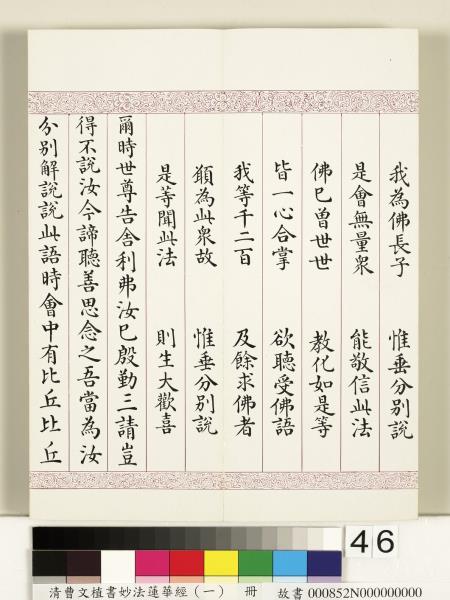 我為佛長子　惟垂分別說
是會無量衆　能敬信此法
佛已曾世世　教化如是等
皆一心合掌　欲聽受佛語
我等千二百　及餘求佛者
願為此衆故　惟垂分別說
是等聞此法　則生大歡喜
爾時世尊告舍利弗汝已殷勤三請豈
得不說汝今諦聽善思念之吾當為汝
分別解說說此語時會中有比丘比丘
46
清曹文植書妙法蓮華經（一）　冊　故書 000852N000000000